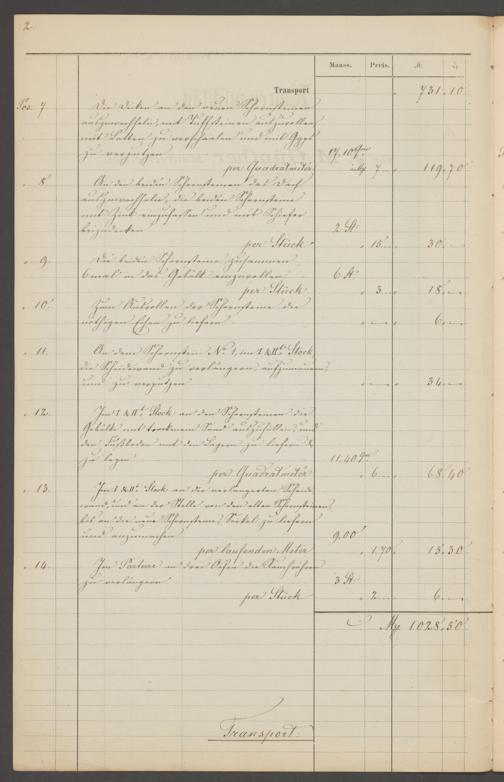 2.
Maass. Preis. M. ₰
Transport 731. 10.
Pos. 7. Die Decken an den neuen Schornsteinen
auszuwechseln, mit Tuffsteinen auszurollen
mit Latten zu verschaalen und mit Gyps
zu verputzen 17,10
per Quadratmeter 7. 119. 70
" 8. An den beiden Schornsteinen das Dach
auszuwechseln, die beiden Schornsteine
mit Zink einzufassen und mit Schiefer
beizudecken 2 St.
per Stück 15. 30.
" 9. Die beiden Schornsteine zusammen
6 mal in das Gebälk einzurollen 6 St.
per Stück 3. 18.
" 10. Zum Ausrollen der Schornsteine die
nöthigen Eisen zu liefern 6.
" 11. An dem Schornstein No. 1, im I & IIt. Stock
die Scheidewand zu verlängern, aufzumauern
und zu verputzen 34.
" 12. Im I & IIt. Stock an den Schornsteinen die
Gebälke mit trockenem Sand auszufüllen, und
den Fußboden mit den Lagern zu liefern &
zu legen 11,40
per Quadratmeter 6. 68. 40
" 13. Im I & IIt. Stock an der verlängerten Scheide
wand, und an der Stelle von den alten Schornsteinen,
bis an die neue Schornsteine, Sockel zu liefern
und anzumachen 9,00
per laufenden Meter 1.70. 15. 30.
" 14. Im Parterre an drei Oefen die Rauchrohre
zu verlängern 3 St.
per Stück 2. 6.
1028. 50
Transport.